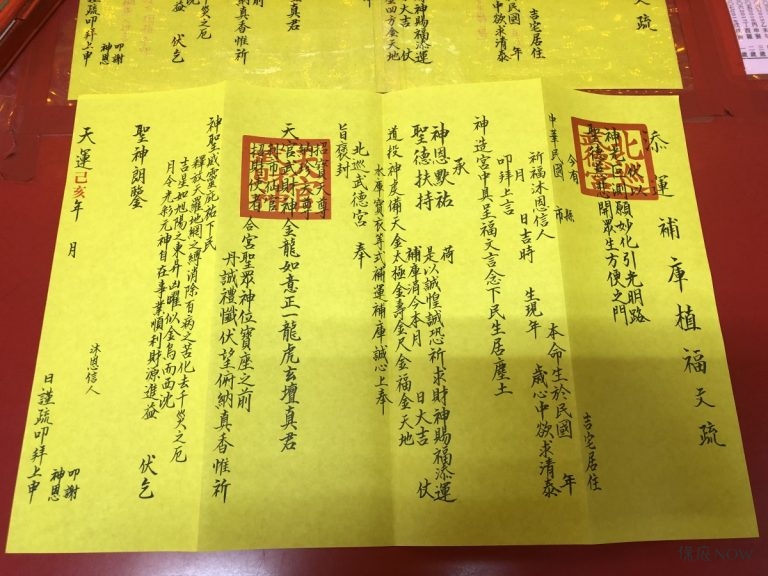 文疏
吉宅居住
年
欲求清泰
賜福添運
大吉 伏
金天地
真君
之前
納真香惟祈
伏乞
拜上申
叩謝
神恩
添運補庫植福文疏
伏以
願妙化引光明路
開眾生方便之門
今有
中華民國 縣市 吉宅居住
祈福沐恩信人 本命生於民國 年
月 日吉時 生現年 歲心中欲求清泰
叩拜上言
神造宮中具呈福文言念下民生居塵土
承
神恩默祐 荷
聖德扶持 是以誠惶誠恐祈求財神賜福添運
補庫涓今本月 日大吉 伏
道投神虔備天金太極金壽金尺金福金天地
水庫寶衣等式補運補庫誠心上奉
北巡武德宮 奉
旨褒封
招寶天尊
納珍天尊
天官武財神金龍如意正一龍虎玄壇真君
招財使者
利市仙官
合宮聖眾神位寶座之前
丹誠禮懺伏望俯納真香惟祈
神聖威靈庇祐下民
釋放天羅地網之縛消除百病之苦化去千災之厄
吉星如旭陽之東昇凶曜似金烏而西沈
月令光彩元神自在事業順利財源進益 伏乞
聖神朗鑒
沐恩信人
天運己亥年 月 日謹疏叩拜上申
叩謝
神恩
保庇NOW